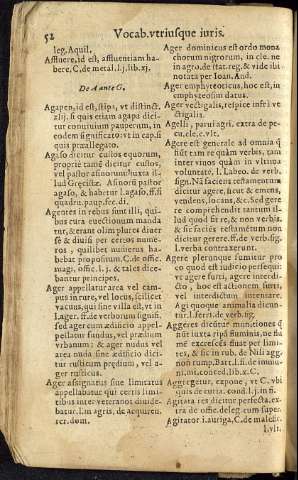 52 Vocab. vtriusque iuris.
leg. Aquil.
Affluere, id est, affluentiam ha
bere, C. de metal. l. j. lib. xj.
De A ante G.
Agapen, id est, stips, vt distinct.
xlij. si quis etiam agapa dici-
tur conuiuium pauperum, in
eodem significato: vt in cap. si
quis præallegato.
Agaso dicitur custos equorum,
proprie tamé dicitur custos,
vel pastor asinorum: iuxta il-
lud Grecistæ. Asinorū pastor
agaso, & habetur l. agaso, ff. si
quadru. paup. fec. di.
Agentes in rebus sunt illi, quibus
cura euectionum manda
tur, & erant olim plures diuer
sè & diuisi per certos nume-
ros, quilibet numerus ha-
bebat propositum, C. de offic.
magi. offic. l. j. & tales dice-
bantur principes.
Ager appellatur area vel cam-
pus in rure, vel locus, scilicet
vacuus, qui sine villa est, vt in
l. ager. ff. de verborum signifi.
sed ager cum ædificio appel-
appellatur fundus, vel prædium
vrbanum; & ager nudus vel
area nuda sine ædificio dici-
tur rusticum prędium, vel a-
ger rusticus.
Ager assignatus sine limitatus
appellabatur qui certis limi-
tibus inter veteranos diuide-
batur. l. in agris, de acquiren.
rer. dom.
Ager dominicus est ordo mona
chorum nigrorum, in cle. ne
in agro. de stat. reg. & vide ibi
notata per Ioan. And.
Ager emphyteoticus, hoc est, in
emphyteosim datus.
Ager vectigalis, respice infrà ve
ctigalis.
Agelli, parui agri. extra de pe-
cu. cle. c. vlt.
Agere est generale ad omnia q
fiūt tam re quàm verbis, tam
inter viuos quàm in vltima
voluntate, l. Labeo. de verb.
sign. Ná faciens testamentum
dicitur agere, sicut & emens,
vendens, locans, &c. Sed gere
re comprehendit tantùm il-
lud quod fit re, & non verbis,
& sic faciés testamétum non
dicitur gerere. ff. de verb. sig.
l. verba contraxerunt.
Agere plerunque sumitur pro
eo quod est iudicio persequi:
vt agere furti, agere interdi-
cto, hoc est actionem furti,
vel interdictum intentare.
Agi quoque animalia dicun-
tur. l. ferri. de verb. sig.
Aggeres dicūtur munitiones q
sūt iuxta ripā fluminis, ne flu
mē excrescēs fluat per limi-
tes, & sic in rub. de Nili agg
non rump. Bart. l. si de immu-
ni. nt. conced. lib. x. C.
Aggregetur, expone, vt C. vbi
quis de curia. cond. l. j. in fi.
Agitata res dicitur perfecta, ex-
tra de offic. deleg. cum super.
Agitator i. auriga, C. de maleſic.
l. vlt.